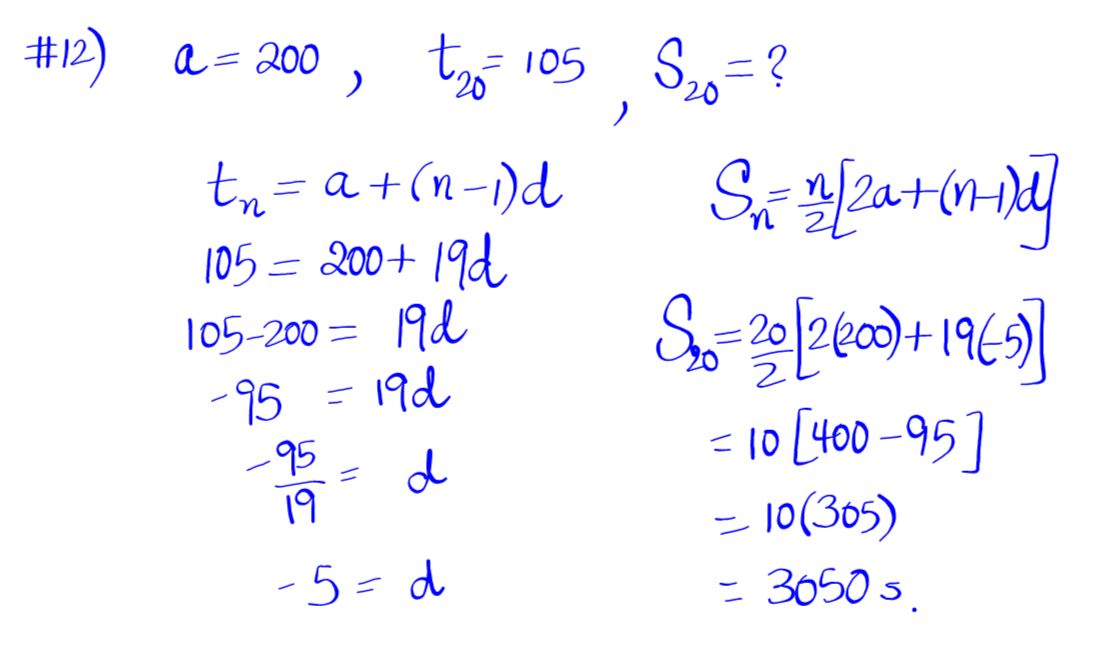 #12) a = 200 , t₂₀ = 105 , S₂₀ = ?
tₙ = a + (n-1)d
105 = 200 + 19d
105-200 = 19d
-95 = 19d
-95/19 = d
-5 = d
Sₙ = n/2[2a+(n-1)d]
S₂₀ = 20/2[2(200)+19(-5)]
= 10[400-95]
= 10(305)
= 3050 s.